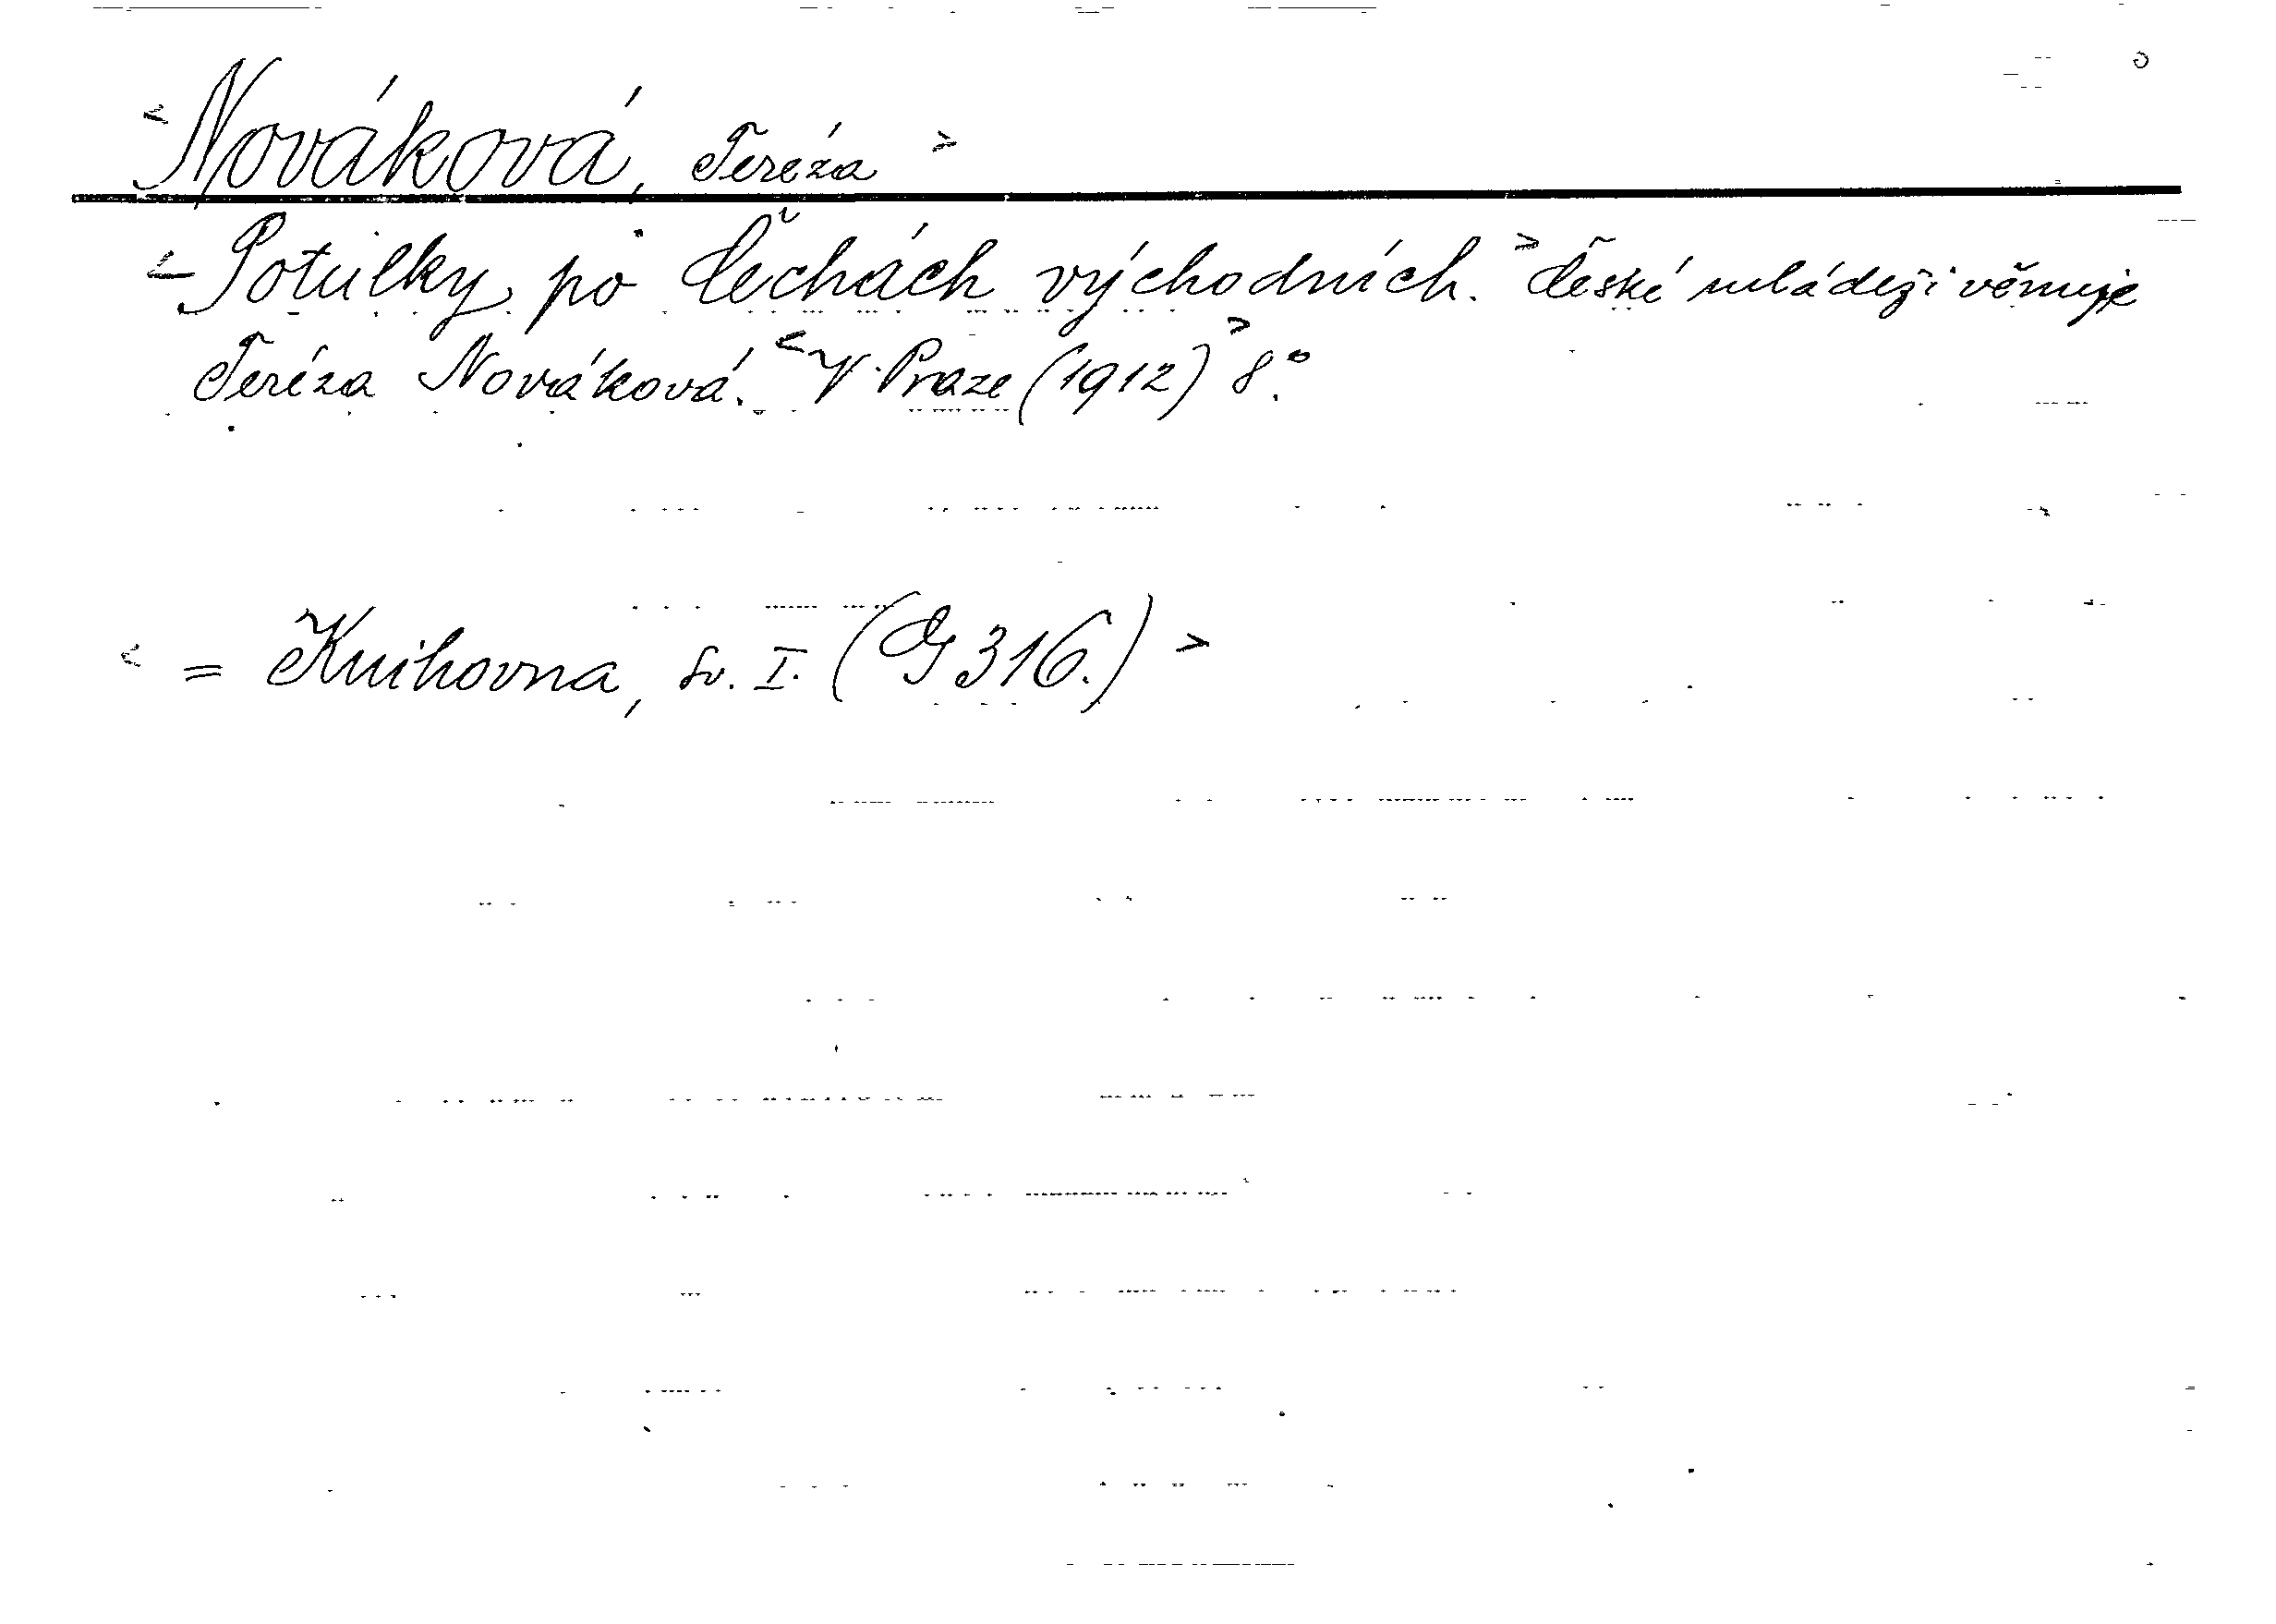 <Nováková, Teréza>
<Potulky po Čechách východních.> České mládeži věnuje
Teréza Nováková. <V Praze (1912)> 8°.
< = Knihovna, sv. I. (G 316.) >